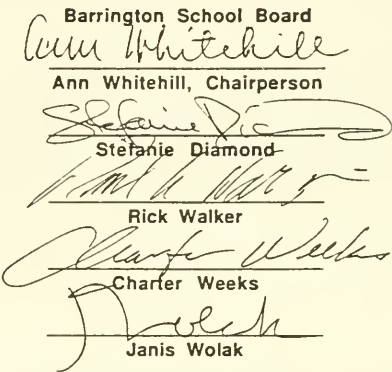 Barrington School Board
Ann Whitehill
Ann Whitehill, Chairperson
Stefanie Diamond
Rick Walker
Charter Weeks
Charter Weeks
J Wolak
Janis Wolak